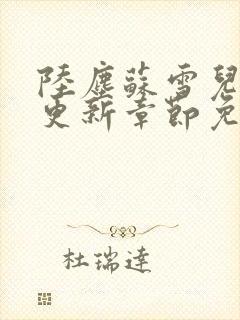 陸塵蘇雪兒
更新章節免
杜瑞達